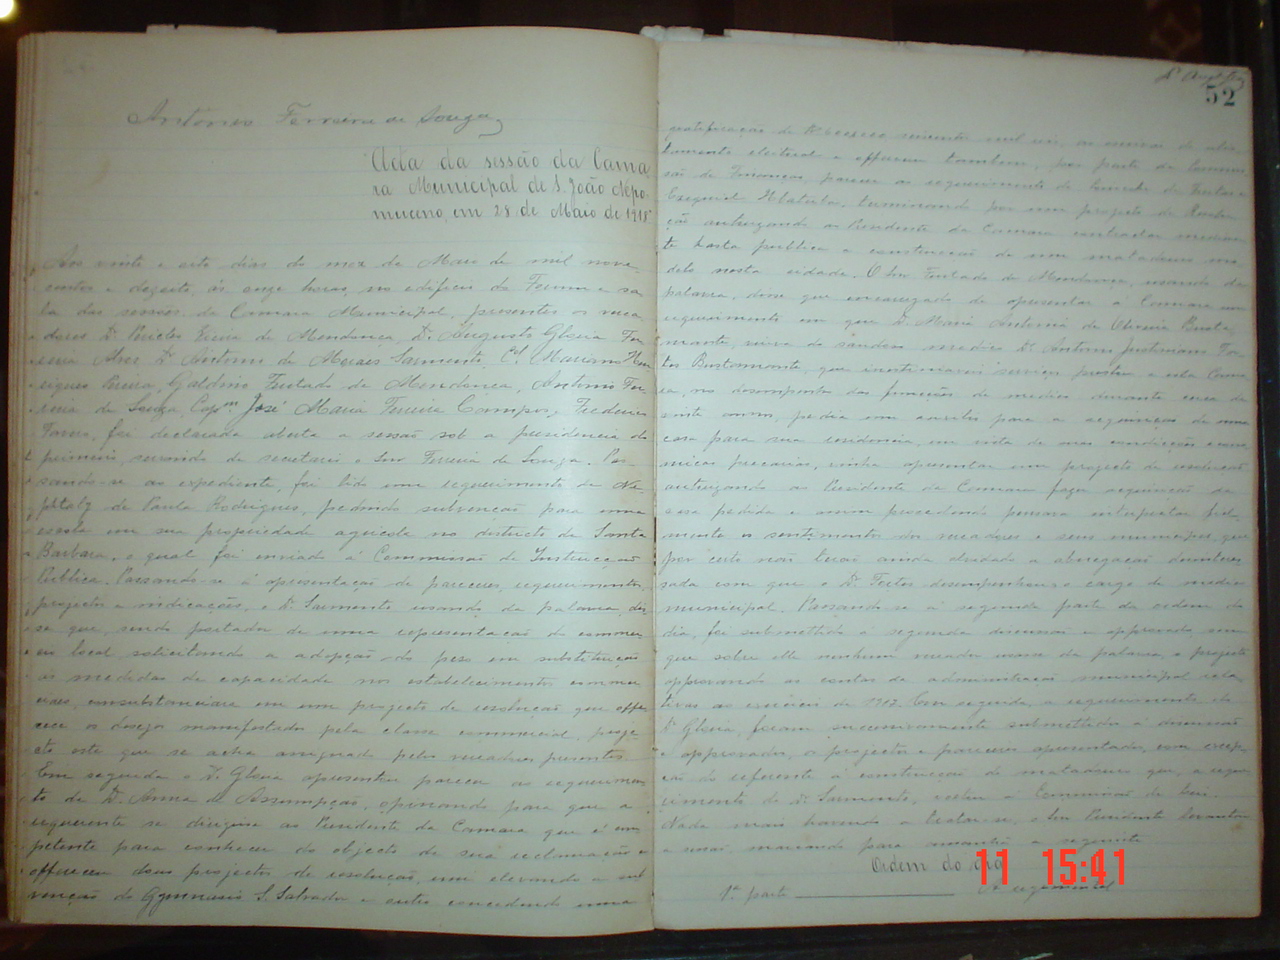 Antonio Ferreira de Souza
Acta da sessão da Cama-
ra Municipal de S. João Nepo-
muceno, em 28 de Maio de 1918
Aos vinte e oito dias do mez de Maio de mil nove-
centos e dezoito, ás onze horas, no edificio do Forum e sa-
la das sessões da Camara Municipal, presentes os verea-
dores Dr. Pericles Vieira de Mendonça, Dr. Augusto Gloria Fer-
reira Alves, Dr. Antonio de Moraes Sarmento, Cel. Mariano Hen-
riques Pereira, Galdino Furtado de Mendonça, Antonio Fer-
reira de Souza, Capm. José Maria Ferreira Campos, Frederico
Torres, foi declarada aberta a sessão sob a presidencia do
primeiro, servindo de secretario o Snr Ferreira de Souza. Pas-
sando-se ao expediente, foi lido um requerimento de Ne-
phtaly de Paula Rodrigues, pedindo subvenção para uma
escola em sua propriedade agricola no districto de Santa
Barbara, o qual foi enviado á Commissão de Instrucção
Publica. Passando-se á apresentação de pareceres, requerimentos,
projectos e indicações, o Dr. Sarmento usando da palavra dis-
se que, sendo portador de uma representação do commer-
cio local, solicitando a adopção do peso em substituição
ás medidas de capacidade nos estabelecimentos commer-
ciaes, consubstanciara em um projecto de resolução que offe-
rece o desejo manifestado pela classe commercial, proje-
cto este que se acha assignado pelos vereadores presentes.
Em seguida o Dr. Gloria apresentou parecer ao requerimen-
to de D. Anna de Assumpção, opinando para que a
requerente se dirigisse ao Presidente da Camara que é com-
petente para conhecer do objecto de sua reclamação e
offereceu dous projectos de resolução, um elevando a sub-
venção do Gymnasio S. Salvador e outro concedendo uma
52
gratificação de
tamento eleitoral e offereceu tambem, por parte da Commis-
são de Finanças, parecer ao requerimento de
Ezequiel terminando por um projecto de Resolu-
ção autorizando o Presidente da Camara contractar median-
te hasta publica a construcção de um matadouro mo-
delo nesta cidade. O Snr Furtado de Mendonça, usando da
palavra, disse que encarregado de apresentar á Camara um
requerimento em que D. Maria Antonia de Oliveira Busta-
mante, viuva do saudoso medico Dr. Antonio Justiniano For-
tes Bustamante, que inestimaveis serviços prestou a esta Cama-
ra, no desempenho das funcções de medico durante cerca de
vinte annos, pedia um auxilio para a acquisição de uma
casa para sua residencia, em vista de suas condições econo-
micas precarias, vinha apresentar um projecto de resolução
autorizando o Presidente da Camara fazer acquisição da
casa pedida e assim procedendo pensava interpretar fiel-
mente o sentimento dos vereadores e seus municipes que
por certo não terão ainda olvidado a abnegação desinteres-
sada com que o Dr. Fortes desempenhou o cargo de medico
municipal. Passando-se á segunda parte da ordem do
dia, foi submettido á segunda discussão e approvado, sem
que sobre elle nenhum vereador usasse da palavra, o projecto
approvando as contas da administração municipal rela-
tivas ao exercicio de 1917. Em seguida, a requerimento do
Dr. Gloria, foram successivamente submettidos á discussão
e approvados, os projectos e pareceres apresentados, com excep-
ção do referente á construcção do matadouro que, a reque-
rimento do Dr. Sarmento, voltou á Commissão de
Nada mais havendo a tratar-se, o Snr Presidente levantou
a sessão, marcando para amanhã a seguinte
Ordem do dia
1ª parte
11 15:41